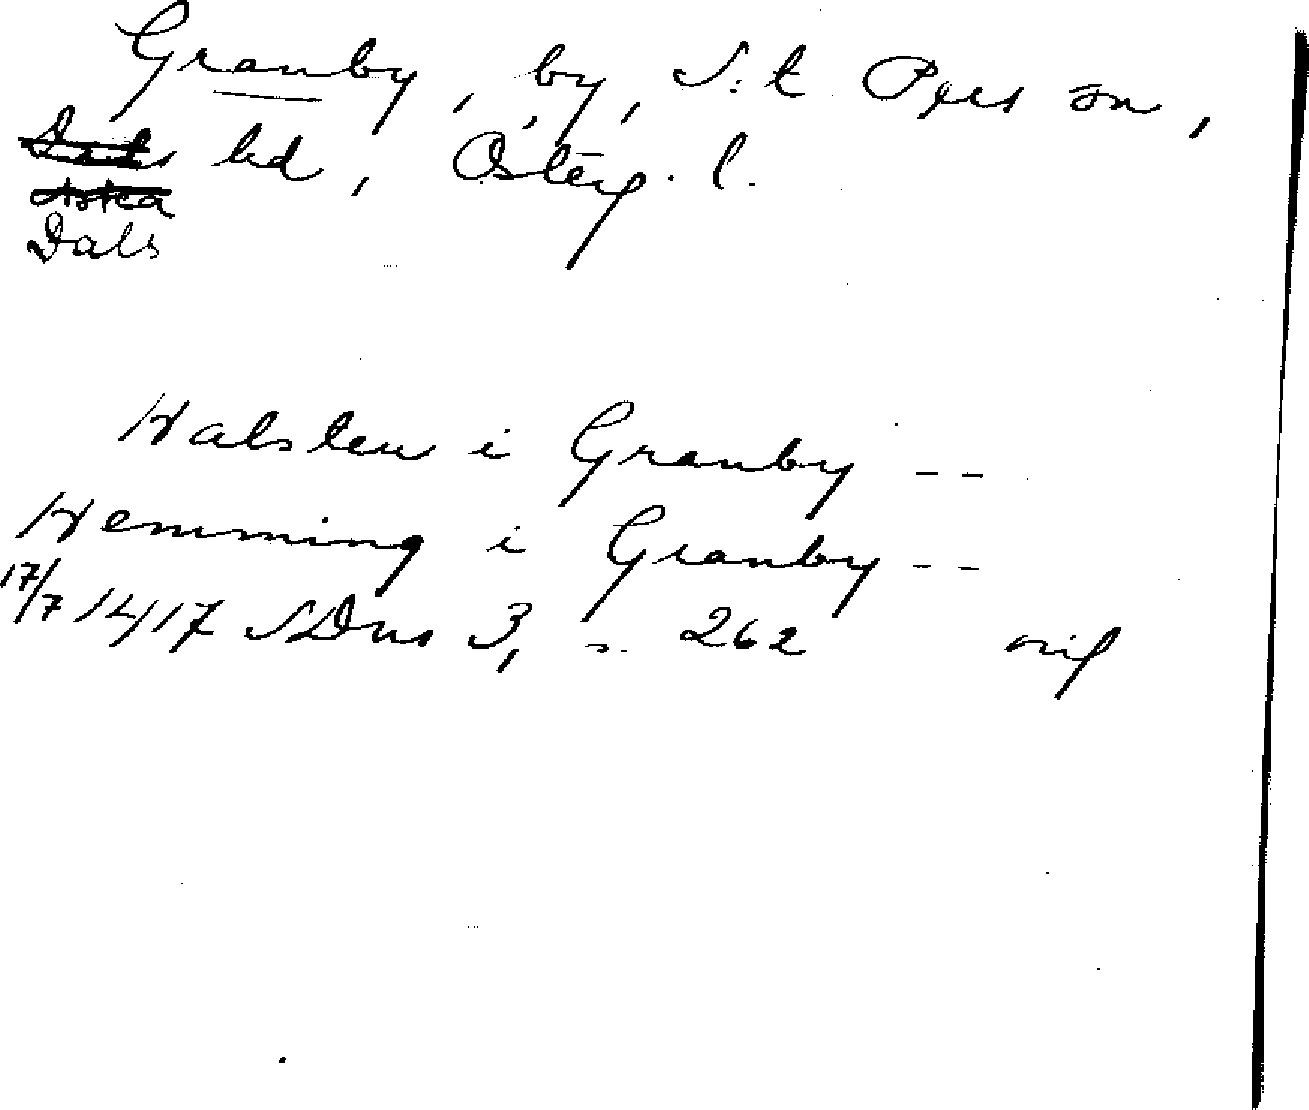 Granby, by, S:t Pers sn,
Dals hd, Österg. l.
Aska
Dals
Halsten i Granby --
Hemming i Granby --
17/7 1417 SDns 3, s. 262 orig